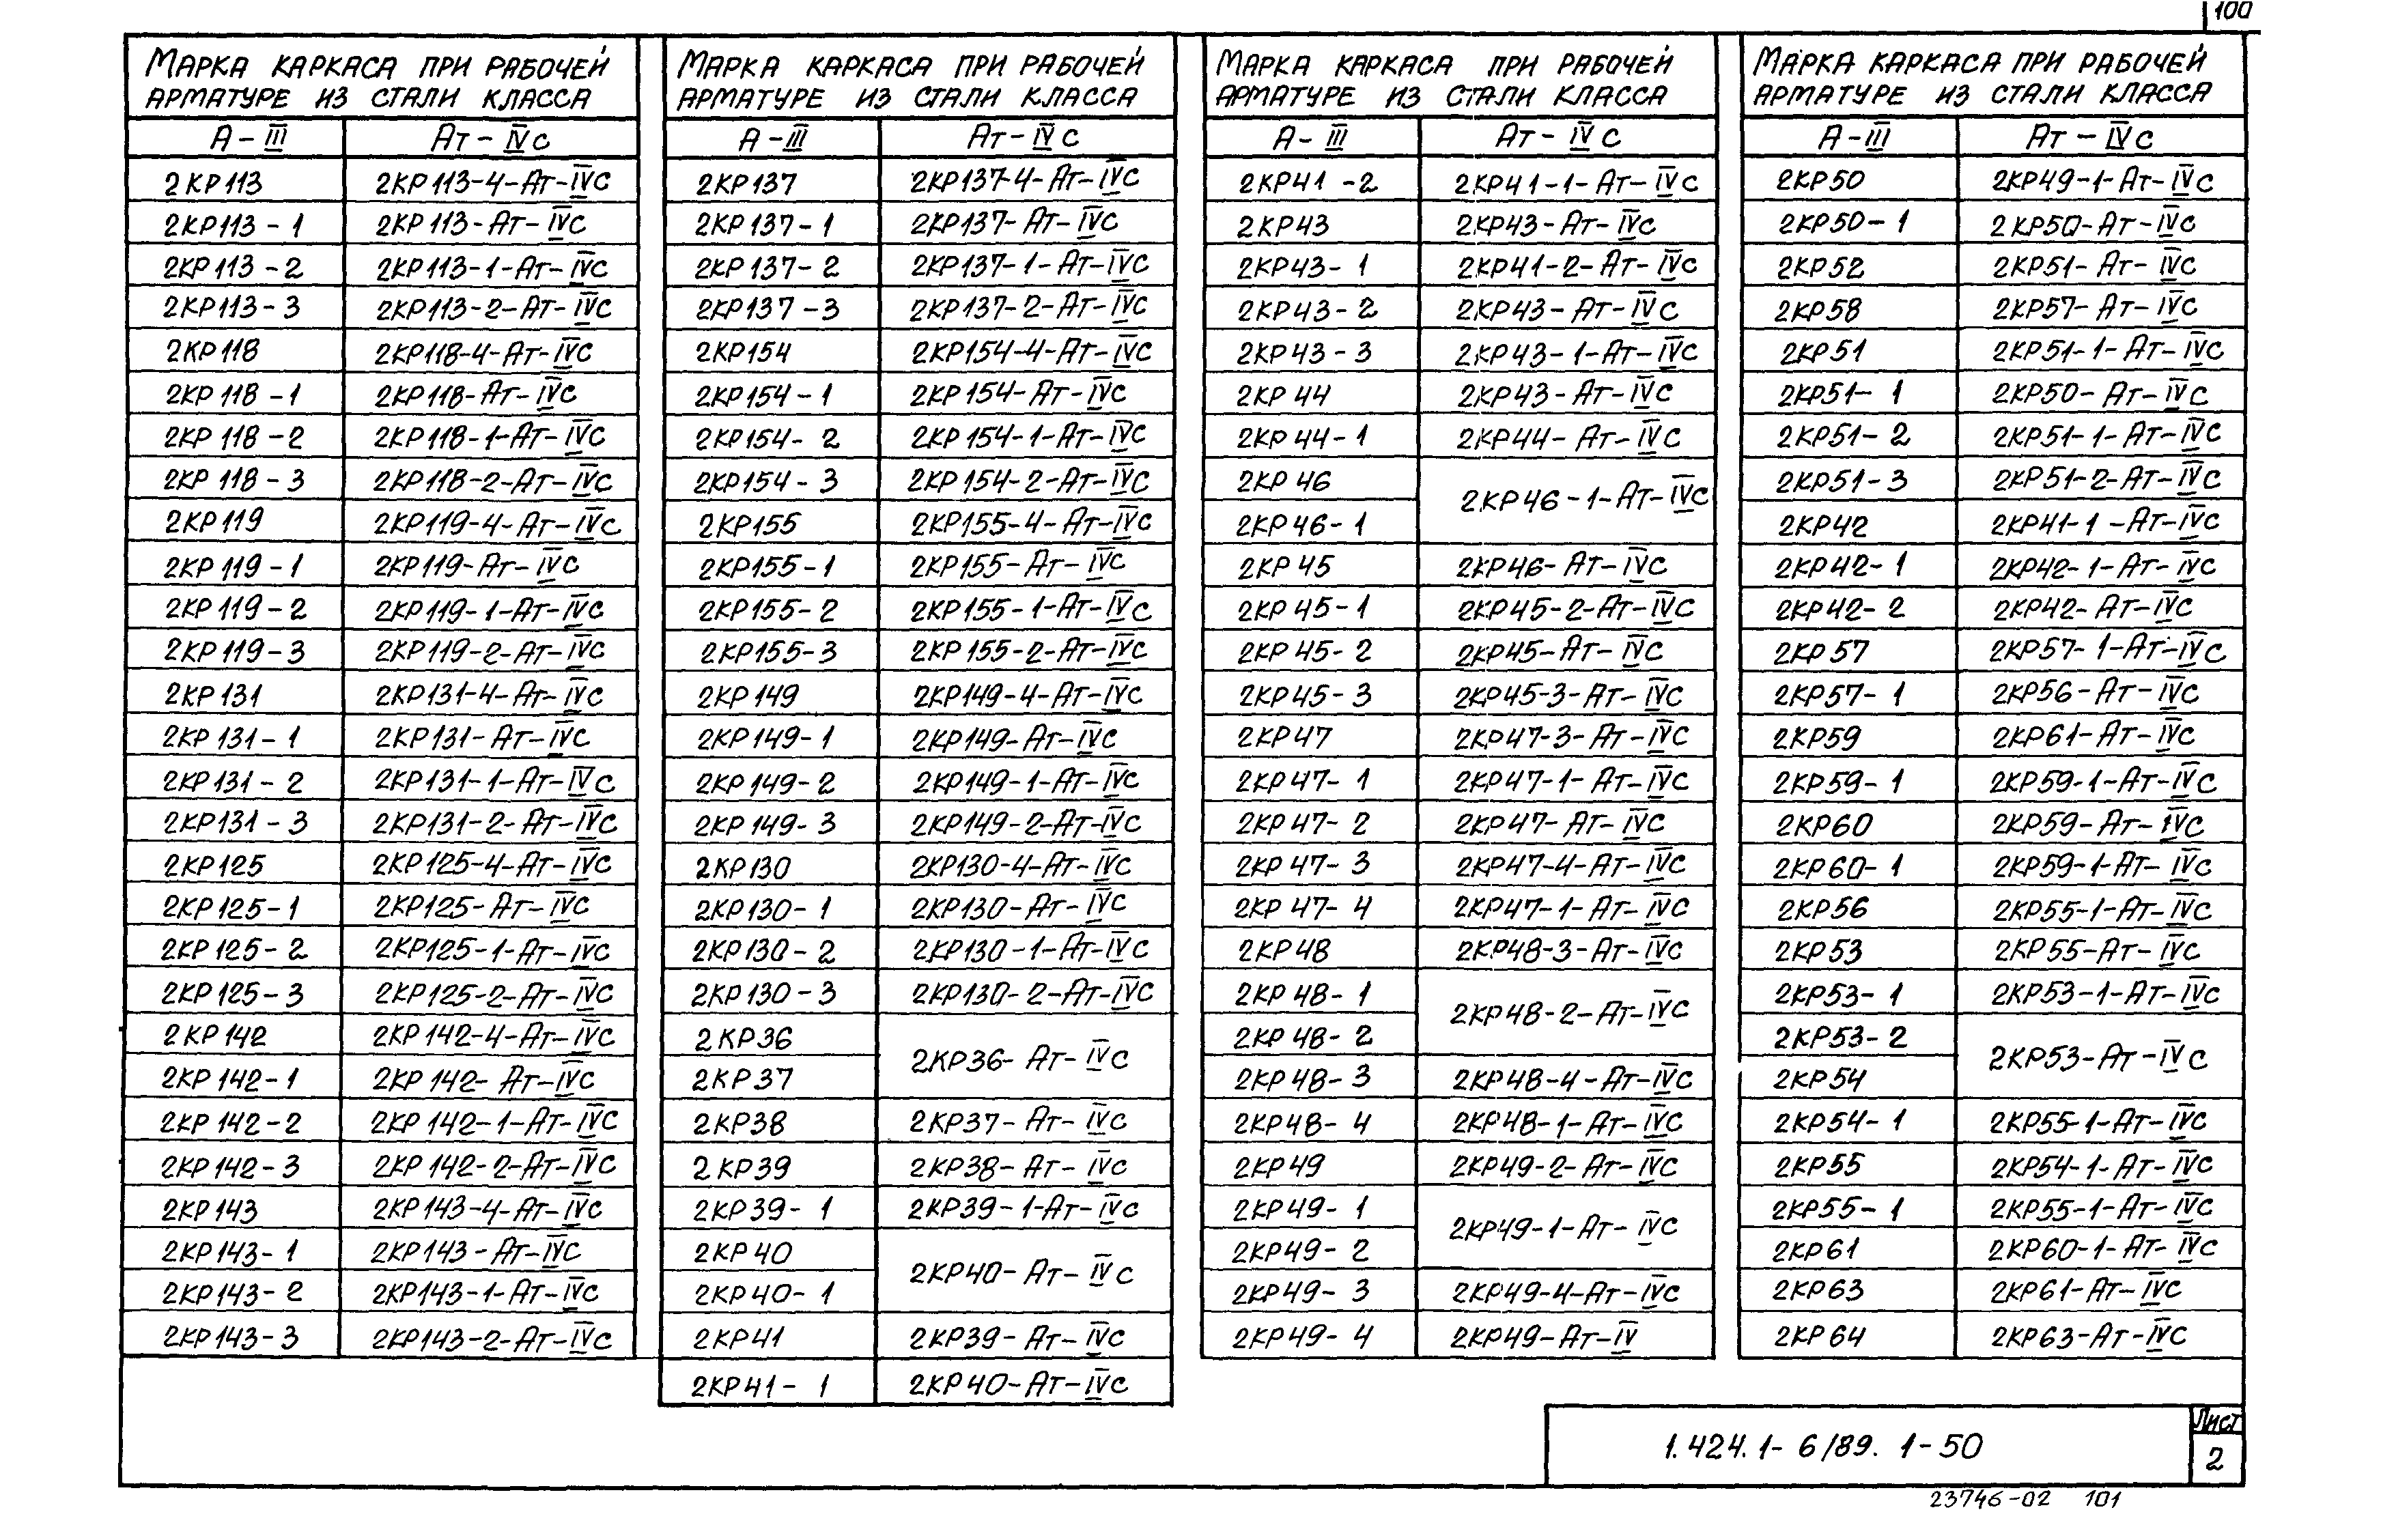 100
МАРКА КАРКАСА ПРИ РАБОЧЕЙ
АРМАТУРЕ ИЗ СТАЛИ КЛАССА
А-III Ат-IVс
2КР113 2КР113-4-Ат-IVс
2КР113-1 2КР113-Ат-IVс
2КР113-2 2КР113-1-Ат-IVс
2КР113-3 2КР113-2-Ат-IVс
2КР118 2КР118-4-Ат-IVс
2КР118-1 2КР118-Ат-IVс
2КР118-2 2КР118-1-Ат-IVс
2КР118-3 2КР118-2-Ат-IVс
2КР119 2КР119-4-Ат-IVс
2КР119-1 2КР119-Ат-IVс
2КР119-2 2КР119-1-Ат-IVс
2КР119-3 2КР119-2-Ат-IVс
2КР131 2КР131-4-Ат-IVс
2КР131-1 2КР131-Ат-IVс
2КР131-2 2КР131-1-Ат-IVс
2КР131-3 2КР131-2-Ат-IVс
2КР125 2КР125-4-Ат-IVс
2КР125-1 2КР125-Ат-IVс
2КР125-2 2КР125-1-Ат-IVс
2КР125-3 2КР125-2-Ат-IVс
2КР142 2КР142-4-Ат-IVс
2КР142-1 2КР142-Ат-IVс
2КР142-2 2КР142-1-Ат-IVс
2КР142-3 2КР142-2-Ат-IVс
2КР143 2КР143-4-Ат-IVс
2КР143-1 2КР143-Ат-IVс
2КР143-2 2КР143-1-Ат-IVс
2КР143-3 2КР143-2-Ат-IVс
МАРКА КАРКАСА ПРИ РАБОЧЕЙ
АРМАТУРЕ ИЗ СТАЛИ КЛАССА
А-III Ат-IVс
2КР137 2КР137-4-Ат-IVс
2КР137-1 2КР137-Ат-IVс
2КР137-2 2КР137-1-Ат-IVс
2КР137-3 2КР137-2-Ат-IVс
2КР154 2КР154-4-Ат-IVс
2КР154-1 2КР154-Ат-IVс
2КР154-2 2КР154-1-Ат-IVс
2КР154-3 2КР154-2-Ат-IVс
2КР155 2КР155-4-Ат-IVс
2КР155-1 2КР155-Ат-IVс
2КР155-2 2КР155-1-Ат-IVс
2КР155-3 2КР155-2-Ат-IVс
2КР149 2КР149-4-Ат-IVс
2КР149-1 2КР149-Ат-IVс
2КР149-2 2КР149-1-Ат-IVс
2КР149-3 2КР149-2-Ат-IVс
2КР130 2КР130-4-Ат-IVс
2КР130-1 2КР130-Ат-IVс
2КР130-2 2КР130-1-Ат-IVс
2КР130-3 2КР130-2-Ат-IVс
2КР36
2КР36-Ат-IVс
2КР37
2КР38 2КР37-Ат-IVс
2КР39 2КР38-Ат-IVс
2КР39-1 2КР39-1-Ат-IVс
2КР40
2КР40-Ат-IVс
2КР40-1
2КР41 2КР39-Ат-IVс
2КР41-1 2КР40-Ат-IVс
МАРКА КАРКАСА ПРИ РАБОЧЕЙ
АРМАТУРЕ ИЗ СТАЛИ КЛАССА
А-III Ат-IVс
2КР41-2 2КР41-1-Ат-IVс
2КР43 2КР43-Ат-IVс
2КР43-1 2КР41-2-Ат-IVс
2КР43-2 2КР43-Ат-IVс
2КР43-3 2КР43-1-Ат-IVс
2КР44 2КР43-Ат-IVс
2КР44-1 2КР44-Ат-IVс
2КР46
2КР46-1-Ат-IVс
2КР46-1
2КР45 2КР46-Ат-IVс
2КР45-1 2КР45-2-Ат-IVс
2КР45-2 2КР45-Ат-IVс
2КР45-3 2КР45-3-Ат-IVс
2КР47 2КР47-3-Ат-IVс
2КР47-1 2КР47-1-Ат-IVс
2КР47-2 2КР47-Ат-IVс
2КР47-3 2КР47-4-Ат-IVс
2КР47-4 2КР47-1-Ат-IVс
2КР48 2КР48-3-Ат-IVс
2КР48-1
2КР48-2-Ат-IVс
2КР48-2
2КР48-3 2КР48-4-Ат-IVс
2КР48-4 2КР48-1-Ат-IVс
2КР49 2КР49-2-Ат-IVс
2КР49-1
2КР49-1-Ат-IVс
2КР49-2
2КР49-3 2КР49-4-Ат-IVс
2КР49-4 2КР49-Ат-IV
МАРКА КАРКАСА ПРИ РАБОЧЕЙ
АРМАТУРЕ ИЗ СТАЛИ КЛАССА
А-III Ат-IVс
2КР50 2КР49-1-Ат-IVс
2КР50-1 2КР50-Ат-IVс
2КР52 2КР51-Ат-IVс
2КР58 2КР57-Ат-IVс
2КР51 2КР51-1-Ат-IVс
2КР51-1 2КР50-Ат-IVс
2КР51-2 2КР51-1-Ат-IVс
2КР51-3 2КР51-2-Ат-IVс
2КР42 2КР41-1-Ат-IVс
2КР42-1 2КР42-1-Ат-IVс
2КР42-2 2КР42-Ат-IVс
2КР57 2КР57-1-Ат-IVс
2КР57-1 2КР56-Ат-IVс
2КР59 2КР61-Ат-IVс
2КР59-1 2КР59-1-Ат-IVс
2КР60 2КР59-Ат-IVс
2КР60-1 2КР59-1-Ат-IVс
2КР56 2КР55-1-Ат-IVс
2КР53 2КР55-Ат-IVс
2КР53-1 2КР53-1-Ат-IVс
2КР53-2
2КР53-Ат-IVс
2КР54
2КР54-1 2КР55-1-Ат-IVс
2КР55 2КР54-1-Ат-IVс
2КР55-1 2КР55-1-Ат-IVс
2КР61 2КР60-1-Ат-IVс
2КР63 2КР61-Ат-IVс
2КР64 2КР63-Ат-IVс
1.424.1-6/89. 1-50
Лист
2
23746-02 101